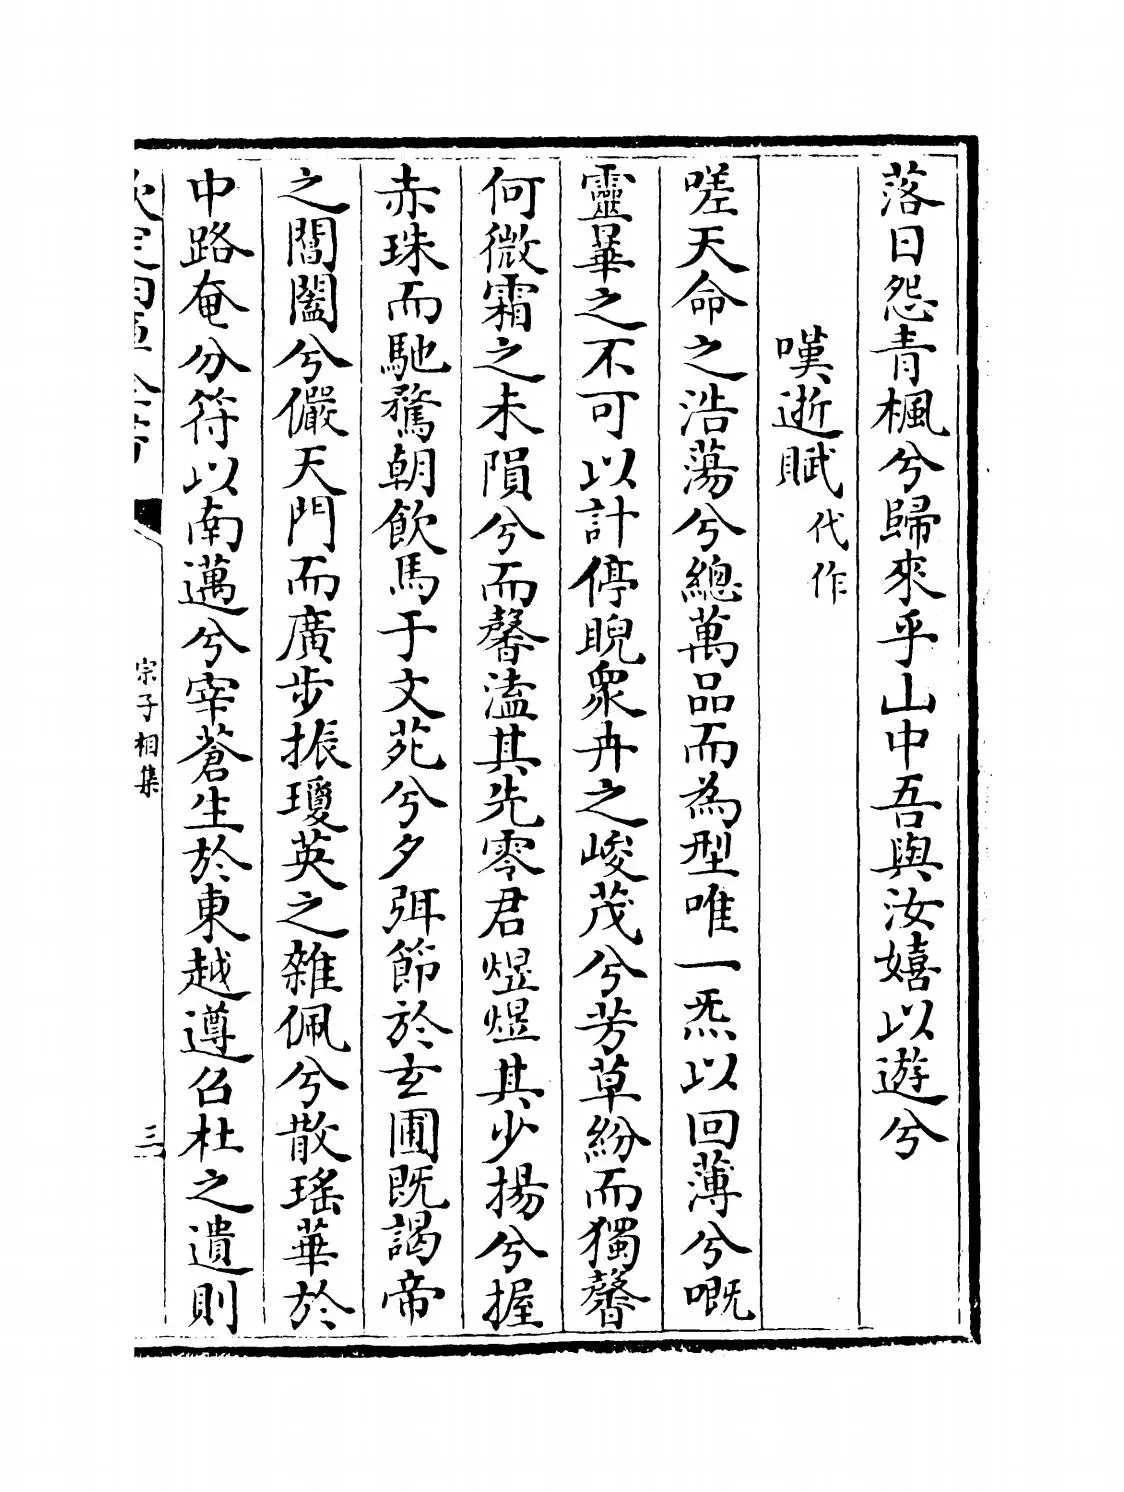 落日怨青楓兮歸來乎山中吾與汝嬉以遊兮
嘆逝賦代作
嗟天命之浩蕩兮總萬品而為型唯一炁以回薄兮嘅
靈畢之不可以計停睨衆卉之峻茂兮芳草紛而獨馨
何微霜之未隕兮而馨溘其先零君煜煜其少揚兮握
赤珠而馳騖朝飲馬于文苑兮夕弭節於玄圃既謁帝
之閶闔兮儼天門而廣步振瓊英之雜佩兮散瑤華於
中路奄分符以南邁兮宰蒼生於東越遵召杜之遺則
欽定四庫全書
宗子相集
三